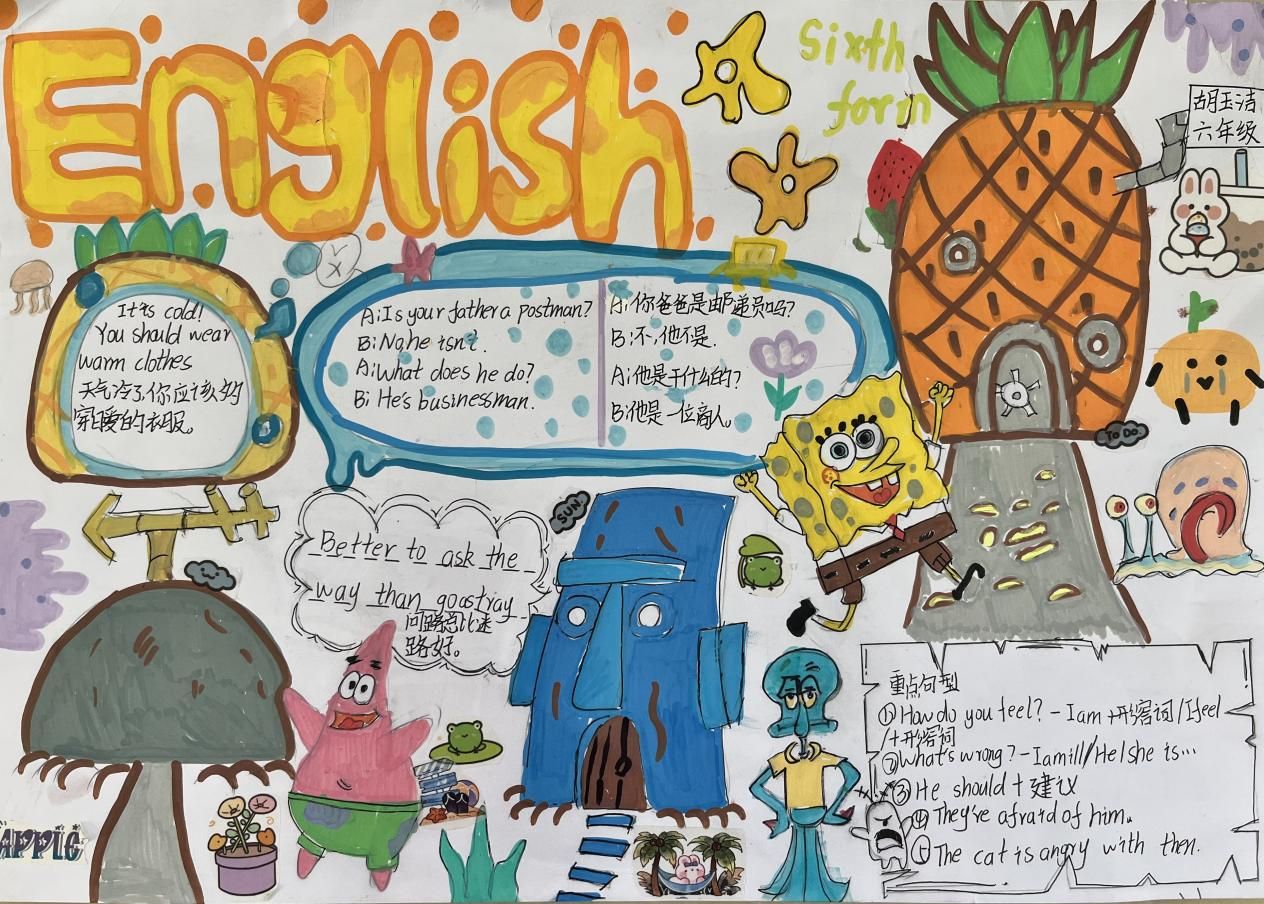 English
Sixth
form
胡玉洁
六年级
It's cold!
You should wear
warm clothes
天气冷了你应该
穿暖的衣服。
A: Is your father a postman?
B: No, he isn't.
A: What does he do?
B: He's businessman.
A: 你爸爸是邮递员吗?
B: 不,他不是.
A: 他是干什么的?
B: 他是一位商人。
TO DO
SUN
Better to ask the
way than go astray
问路总比迷
路好。
重点句型
①How do you feel? - I am +形容词/I feel
/+形容词
②What's wrong? - I am ill/He/she is...
③He should + 建议
④They're afraid of him.
⑤The cat is angry with then.
APPLE